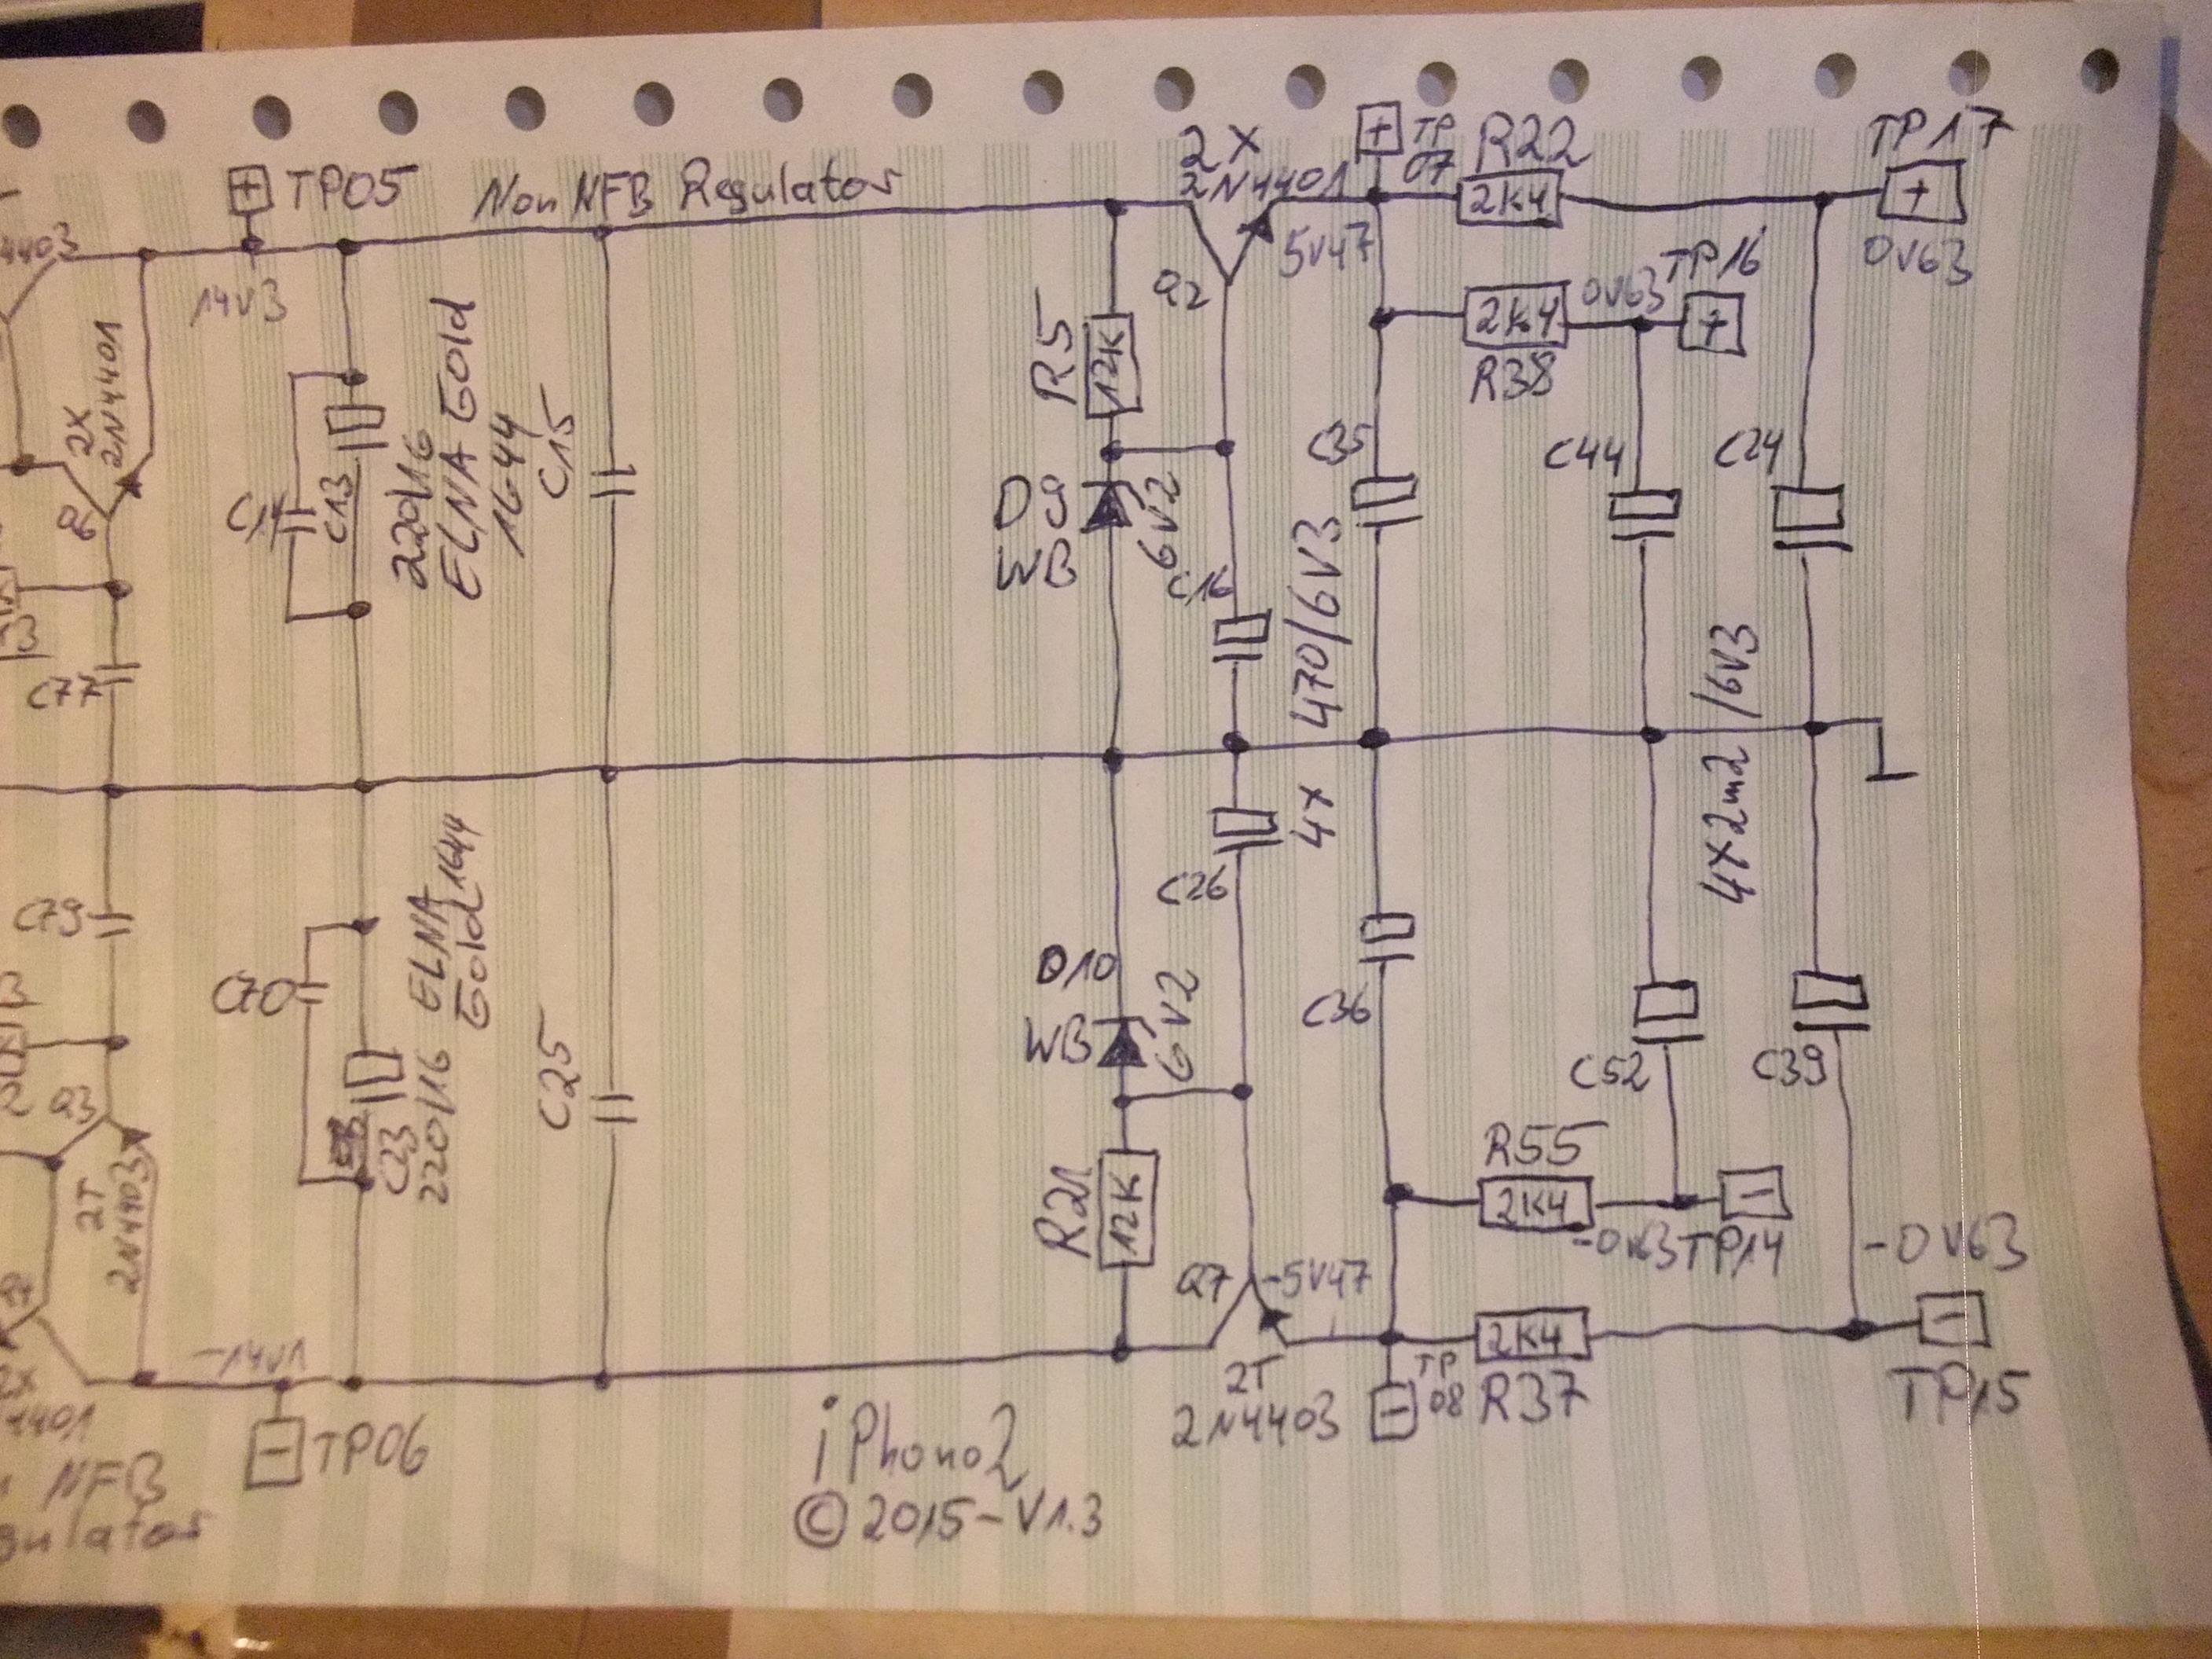 TP05
Non NFB Regulator
14V3
4403
2X
2N4401
2X
2N4401
Q2
5V47
TP
07
R22
2K4
TP17
0V63
2K4
R38
0V63
TP16
R5
12K
D9
WB
6V2
C16
C35
470/6V3
4x
C44
C24
4x2m2/6V3
C13
220/16
ELNA Gold
1644
C15
C77
C79
C70
C23
220/16 ELNA
Gold 1644
C25
Q3
2T
2N4403
D10
WB
6V2
C26
C36
C52
C39
R21
12K
Q7
-5V47
2T
2N4403
R55
2K4
-0V63
TP14
-0V63
TP15
2K4
R37
TP
08
-14V1
TP06
2X
4401
NFB
gulator
iPhono2
© 2015-V1.3